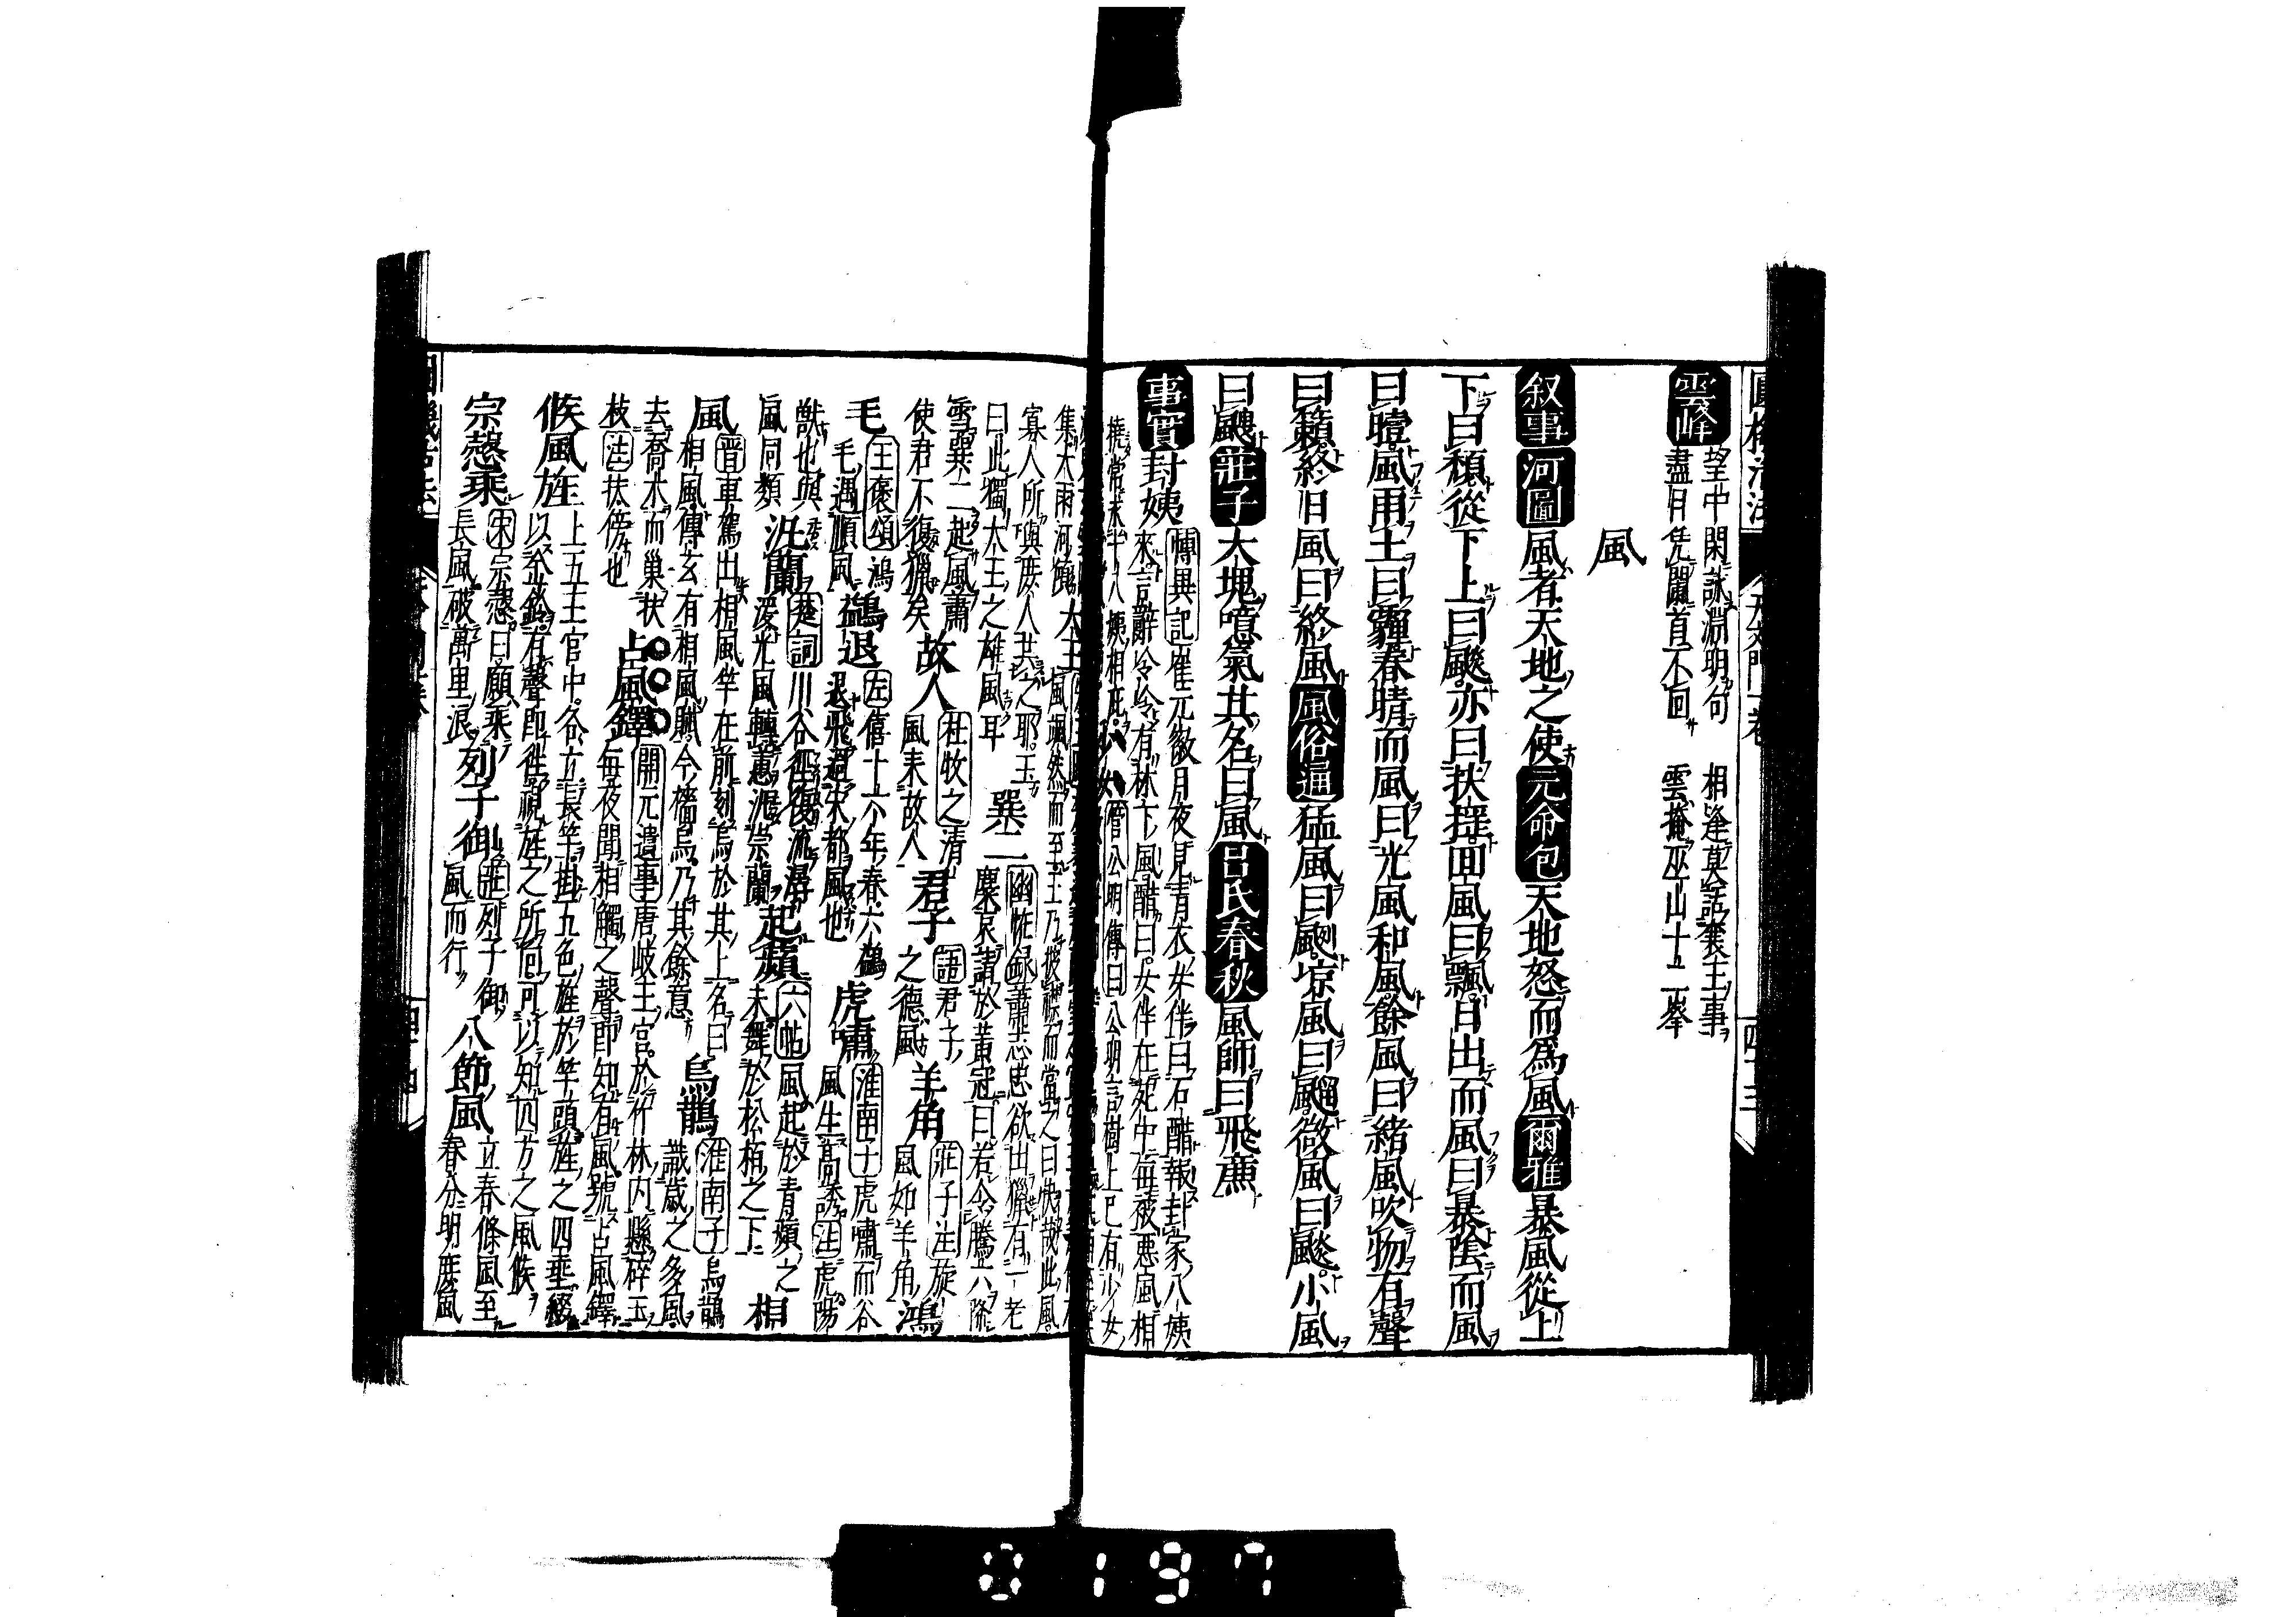 雲峰 望中閑詠淵明句 相逢莫話襄王事
盡日凭闌首不回 雲掩巫山十二峯
風
叙事 河圖 風者天地之使 元命包 天地怒而爲風 爾雅 暴風從上
下曰頹從下上曰飈亦曰扶搖回風曰飄日出而風曰暴陰而風
曰曀風雨土曰霾春晴而風曰光風和風餘風曰緒風吹物有聲
曰籟終日風曰終風 風俗通 猛風曰颲凉風曰飀微風曰飈小風
曰颸 莊子 大塊噫氣其名曰風 呂氏春秋 風師曰飛廉
事實 封姨 博異記 崔元微月夜見青衣女伴曰石醋報封家八姨
來言辭冷冷有林下風醋曰女伴在苑中每被惡風相
撓常求十八姨相庇 少女 管公明傳曰公明言樹上已有少女
集大雨河傾 大王
風颯然而至王乃披襟而當之曰快哉此風
寡人所與庶人共之耶玉
曰此獨大王之雄風耳 巽二 幽怪録 蕭志忠欲出獵有一老
麋哀請於黃冠曰若令騰六降
雪巽二起風肅
使君不復獵矣 故人 杜牧之 清
風來故人 君子 語 君子
之德風 羊角 莊子注 旋
風如羊角 鴻
毛 王褒頌 鴻
毛遇順風 鷁退 左 僖十六年春六鷁
退飛過宋都風也 虎嘯 淮南子 虎嘯而谷
風生高誘 注 虎陽
獣也與
風同類 汎蘭 楚詞 川谷徑復流潺
湲光風轉蕙汎崇蘭 起蘋 六帖 風起於青蘋之
末舞於松栢之下 相
風 晋 車駕出相風竿在前刻烏於其上名曰
相風傳玄有相風賦今檣烏乃其餘意 烏鵲 淮南子 烏鵲
識歲之多風
去喬木而巢扶
枝 注 扶傍也 占風鐸 開元遺事 唐岐王宮於竹林内懸碎玉
每夜聞相觸之聲即知有風號占風鐸
候風旌 上五王宮中各立長竿掛五色旌於竿頭旌之四垂綴
以金鈴有聲即往視旌之所向可以知四方之風候
宗愨乘 宋 宗愨曰願乘
長風破萬里浪 列子御 莊 列子御
風而行 八節風 立春條風至
春分明庶風
0197